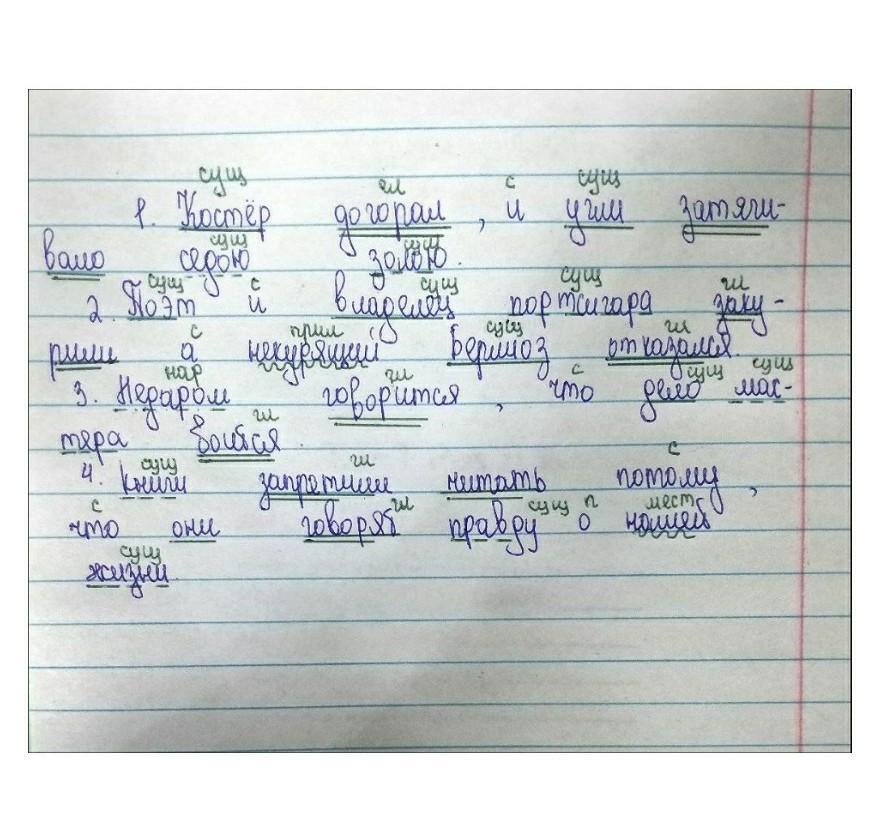 сущ гл с сущ
1. Костёр догорал, и угли затяги-
вало седою золою.
сущ сущ
сущ с сущ сущ гл
2. Поэт и владелец портсигара заку-
с прил сущ гл
рили а некурящий Берлиоз отказался.
нар гл с сущ сущ
3. Недаром говорится, что дело мас-
гл
тера боится.
сущ гл с
4. Книги запретили читать потому,
с гл сущ п мест
что они говорят правду о нашей
сущ
жизни.